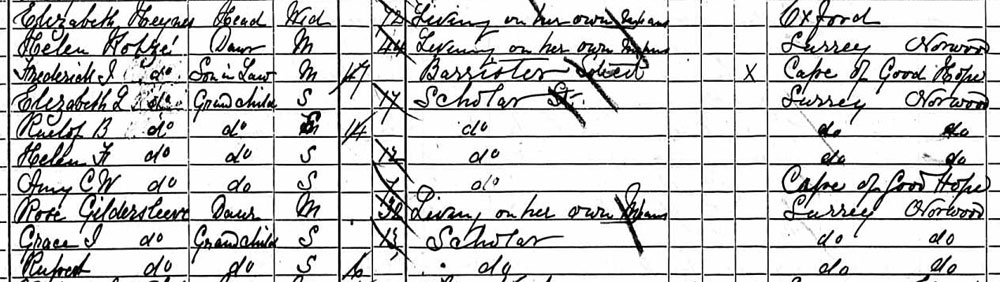 Elizabeth Heynes Head Wid 72 Living on her own Means Oxford
Helen Hofze Daur M 44 Living on her own Means Surrey Norwood
Frederick I do Son in Law M 47 Barrister X Cape of Good Hope
Elizabeth L do Grandchild S 17 Scholar Surrey Norwood
Roelof B do do 14 do do do
Helen F do do S 12 do do do
Amy C W do do S do Cape of Good Hope
Rose Gildersleeve Daur M Living on her own Means Surrey Norwood
Grace I do Grandchild S 13 Scholar do do
Rupert do do S do do do